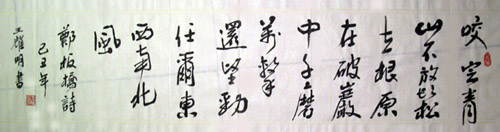 咬定青
山不放松
立根原
在破巖
中千磨
萬擊
還堅勁
任爾東
西南北
風
鄭板橋詩
己丑年
王耀明書